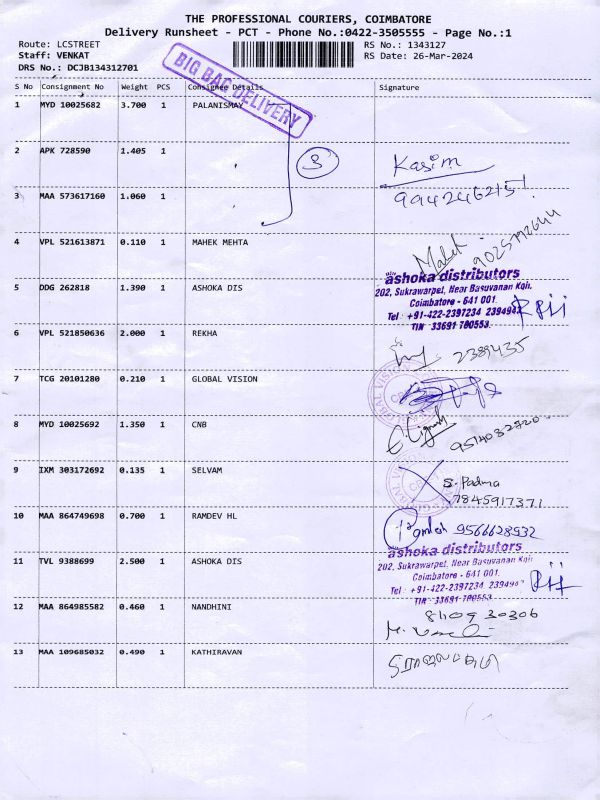 THE PROFESSIONAL COURIERS, COIMBATORE
Delivery Runsheet - PCT - Phone No.:0422-3505555 - Page No.:1
Route: LCSTREET RS No.: 1343127
Staff: VENKAT RS Date: 26-Mar-2024
DRS No.: DCJB134312701
BIG BAG DELIVERY
S No Consignment No Weight PCS Consignee Details Signature
1 MYD 10025682 3.700 1 PALANISMAY
2 APK 728590 1.405 1 3 Kasim
3 MAA 573617160 1.060 1 9942462151
4 VPL 521613871 0.110 1 MAHEK MEHTA Mahek
5 DDG 262818 1.390 1 ASHOKA DIS
ashoka distributors
202, Sukrawarpet, Near Basuvanan Koil,
Coimbatore - 641 001.
Tel : +91-422-2397234 2394947
TIN 33691 780553
6 VPL 521850636 2.000 1 REKHA 2389435
7 TCG 20101280 0.210 1 GLOBAL VISION
GLOBAL VISION
8 MYD 10025692 1.350 1 CNB 9514032720
9 IXM 303172692 0.135 1 SELVAM S. Padma
7845917371
10 MAA 864749698 0.700 1 RAMDEV HL 9566628932
11 TVL 9388699 2.500 1 ASHOKA DIS
ashoka distributors
202, Sukrawarpet, Near Basuvanan Koil,
Coimbatore - 641 001.
Tel : +91-422-2397234 2394947
TIN 33691 780553
12 MAA 864985582 0.460 1 NANDHINI 8109 30306
13 MAA 109685032 0.490 1 KATHIRAVAN